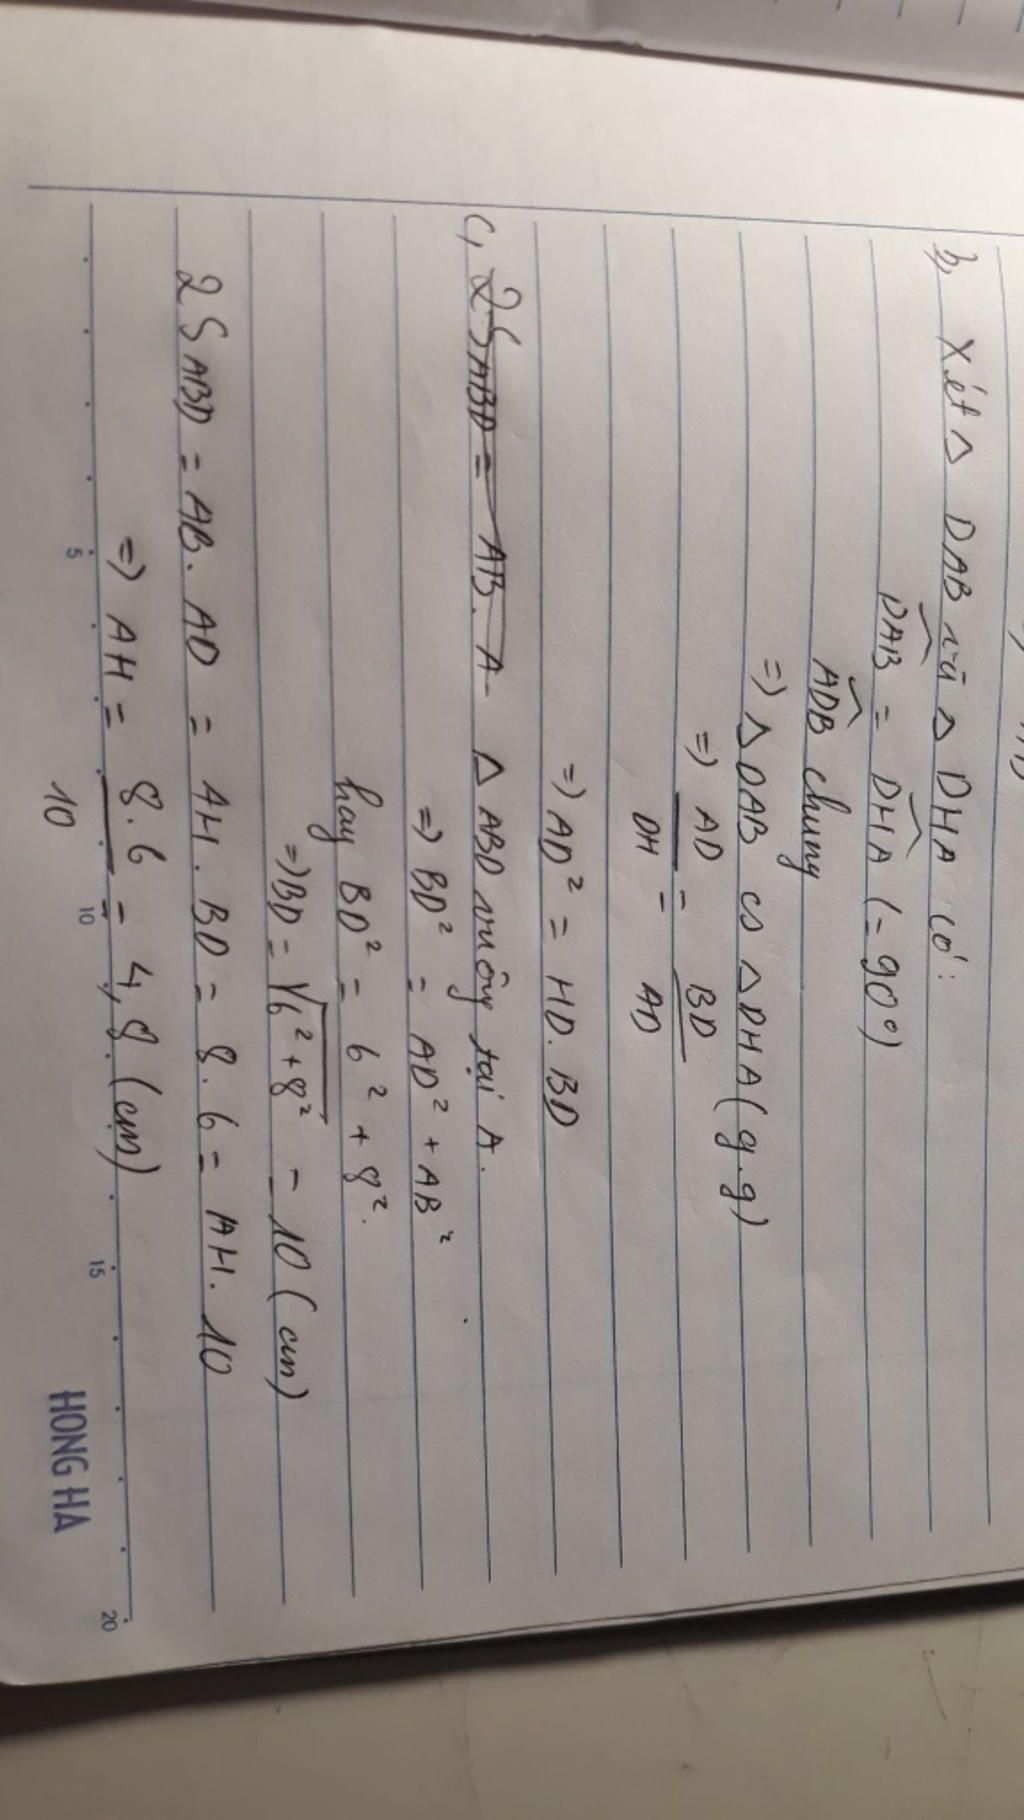 b, Xét △ DAB và △ DHA có:
DAB = DHA (= 90°)
ADB chung
=> △ DAB ∽ △ DHA (g.g)
=> AD/DH = BD/AD
=> AD² = HD. BD
c, 2SABD = AB. A- △ ABD vuông tại A.
=> BD² = AD² + AB²
hay BD² = 6² + 8².
=> BD = √6² + 8² = 10 (cm)
2 SABD = AB. AD = AH. BD = 8. 6 = AH. 10
=> AH = 8. 6/10 = 4,8 (cm)
5 10 15 20
HONG HA